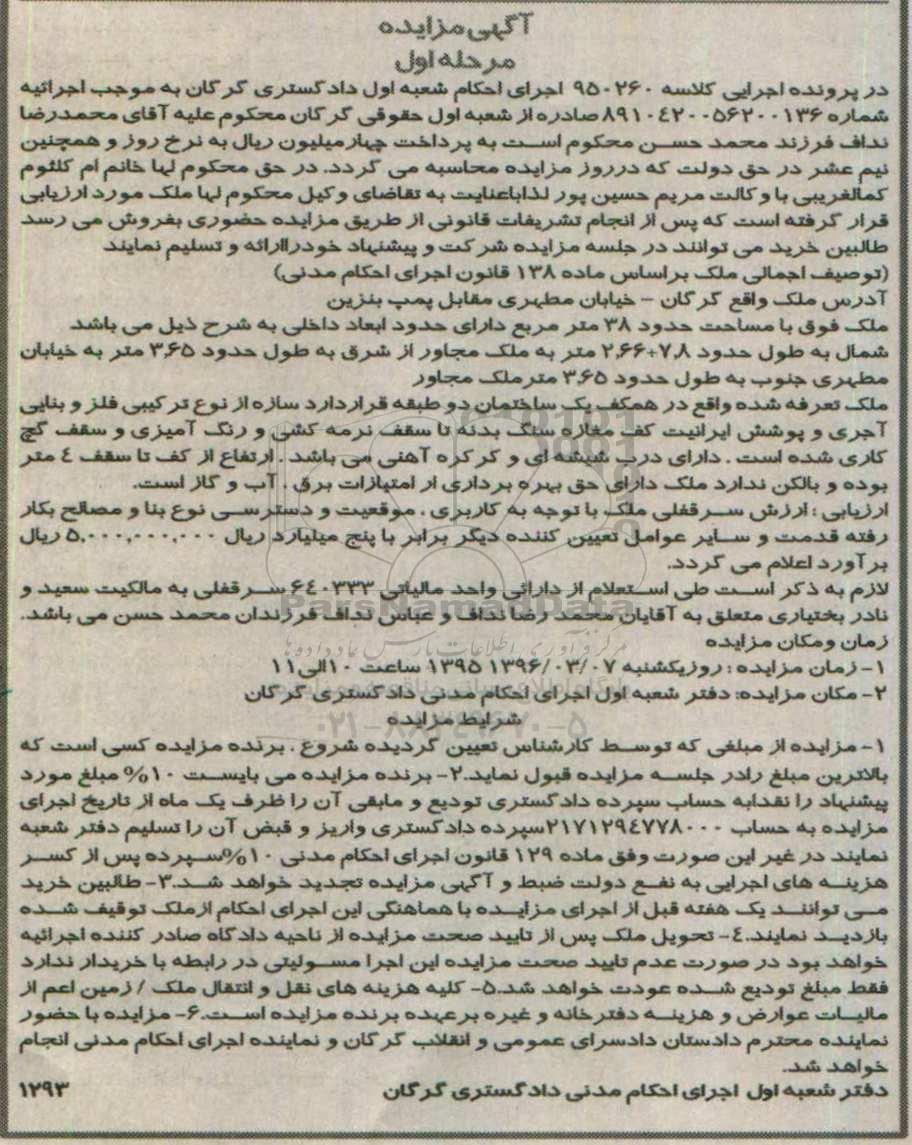 آگهی مزایده
مرحله اول
در پرونده اجرایی کلاسه ۹۵۰۲۶۰ اجرای احکام شعبه اول دادگستری گرگان به موجب اجرائیه
شماره ۸۹۱۰۴۲۰۰۵۶۲۰۰۱۳۶ صادره از شعبه اول حقوقی گرگان محکوم علیه آقای محمدرضا
نداف فرزند محمد حسن محکوم است به پرداخت چهارمیلیون ریال به نرخ روز و همچنین
نیم عشر در حق دولت که درروز مزایده محاسبه می گردد. در حق محکوم لها خانم ام کلثوم
کمالغریبی با وکالت مریم حسین پور لذاباعنایت به تقاضای وکیل محکوم لها ملک مورد ارزیابی
قرار گرفته است که پس از انجام تشریفات قانونی از طریق مزایده حضوری بفروش می رسد
طالبین خرید می توانند در جلسه مزایده شرکت و پیشنهاد خودراارائه و تسلیم نمایند
(توصیف اجمالی ملک براساس ماده ۱۳۸ قانون اجرای احکام مدنی)
آدرس ملک واقع گرگان - خیابان مطهری مقابل پمپ بنزین
ملک فوق با مساحت حدود ۳۸ متر مربع دارای حدود ابعاد داخلی به شرح ذیل می باشد
شمال به طول حدود ۷,۸+۲,۶۶ متر به ملک مجاور از شرق به طول حدود ۳,۶۵ متر به خیابان
مطهری جنوب به طول حدود ۳,۶۵ مترملک مجاور
ملک تعرفه شده واقع در همکف یک ساختمان دو طبقه قراردارد سازه از نوع ترکیبی فلز و بنایی
آجری و پوشش ایرانیت کف مغازه سنگ بدنه تا سقف نرمه کشی و رنگ آمیزی و سقف گچ
کاری شده است . دارای درب شیشه ای و کرکره آهنی می باشد . ارتفاع از کف تا سقف ٤ متر
بوده و بالکن ندارد ملک دارای حق بهره برداری از امتیازات برق . آب و گاز است.
ارزیابی : ارزش سرقفلی ملک با توجه به کاربری . موقعیت و دسترسی نوع بنا و مصالح بکار
رفته قدمت و سایر عوامل تعیین کننده دیگر برابر با پنج میلیارد ریال ۵,۰۰۰,۰۰۰,۰۰۰ ریال
برآورد اعلام می گردد.
لازم به ذکر است طی استعلام از دارائی واحد مالیاتی ۶٤۰۳۳۳ سرقفلی به مالکیت سعید و
نادر بختیاری متعلق به آقایان محمد رضا نداف و عباس نداف فرزندان محمد حسن می باشد.
زمان ومکان مزایده
۱- زمان مزایده : روزیکشنبه ۱۳۹۶/۰۳/۰۷ ۱۳۹۵ ساعت ۱۰الی۱۱
۲- مکان مزایده: دفتر شعبه اول اجرای احکام مدنی دادگستری گرگان
شرایط مزایده
۱- مزایده از مبلغی که توسط کارشناس تعیین گردیده شروع . برنده مزایده کسی است که
بالاترین مبلغ رادر جلسه مزایده قبول نماید.۲- برنده مزایده می بایست ۱۰% مبلغ مورد
پیشنهاد را نقدابه حساب سپرده دادگستری تودیع و مابقی آن را ظرف یک ماه از تاریخ اجرای
مزایده به حساب ۲۱۷۱۲۹٤۷۷۸۰۰۰سپرده دادگستری واریز و قبض آن را تسلیم دفتر شعبه
نمایند در غیر این صورت وفق ماده ۱۲۹ قانون اجرای احکام مدنی ۱۰%سپرده پس از کسر
هزینه های اجرایی به نفع دولت ضبط و آگهی مزایده تجدید خواهد شد.۳- طالبین خرید
می توانند یک هفته قبل از اجرای مزایده با هماهنگی این اجرای احکام ازملک توقیف شده
بازدید نمایند.٤- تحویل ملک پس از تایید صحت مزایده از ناحیه دادگاه صادر کننده اجرائیه
خواهد بود در صورت عدم تایید صحت مزایده این اجرا مسولیتی در رابطه با خریدار ندارد
فقط مبلغ تودیع شده عودت خواهد شد.۵- کلیه هزینه های نقل و انتقال ملک / زمین اعم از
مالیات عوارض و هزینه دفترخانه و غیره برعهده برنده مزایده است.۶- مزایده با حضور
نماینده محترم دادستان دادسرای عمومی و انقلاب گرگان و نماینده اجرای احکام مدنی انجام
خواهد شد.
دفتر شعبه اول اجرای احکام مدنی دادگستری گرگان ۱۲۹۳
ParsNamadData
مرکز فرآوری اطلاعات پارس نماد داده ها
۰۲۱-۸۸۳۴۹۶۷۰-۵